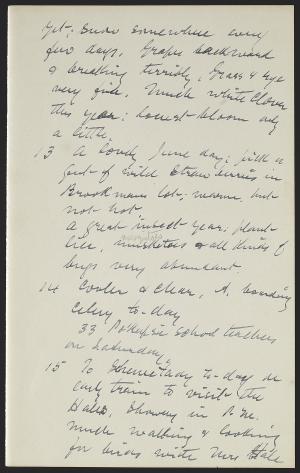 yet; snow somewhere every
few days. Grapes backward
& breaking terribly, Grass & rye
very fine. Much white clover
this year; locust bloom only
a little.
13 A lovely June day; pick a
qut of wild strawberries in
Brookmans lot; warm but
not hot
A great insect year, plant
lice, musketoes & all kinds of
bugs very abundant.
14 Cooler & clear, A. boarding
Celery to-day
33 Pokepsie school teachers
on Saturday,
15 To Schenectady to-day on
early train to visit the
Hales, Showery in P.M.
Much walking & looking
for birds with Mrs Hale